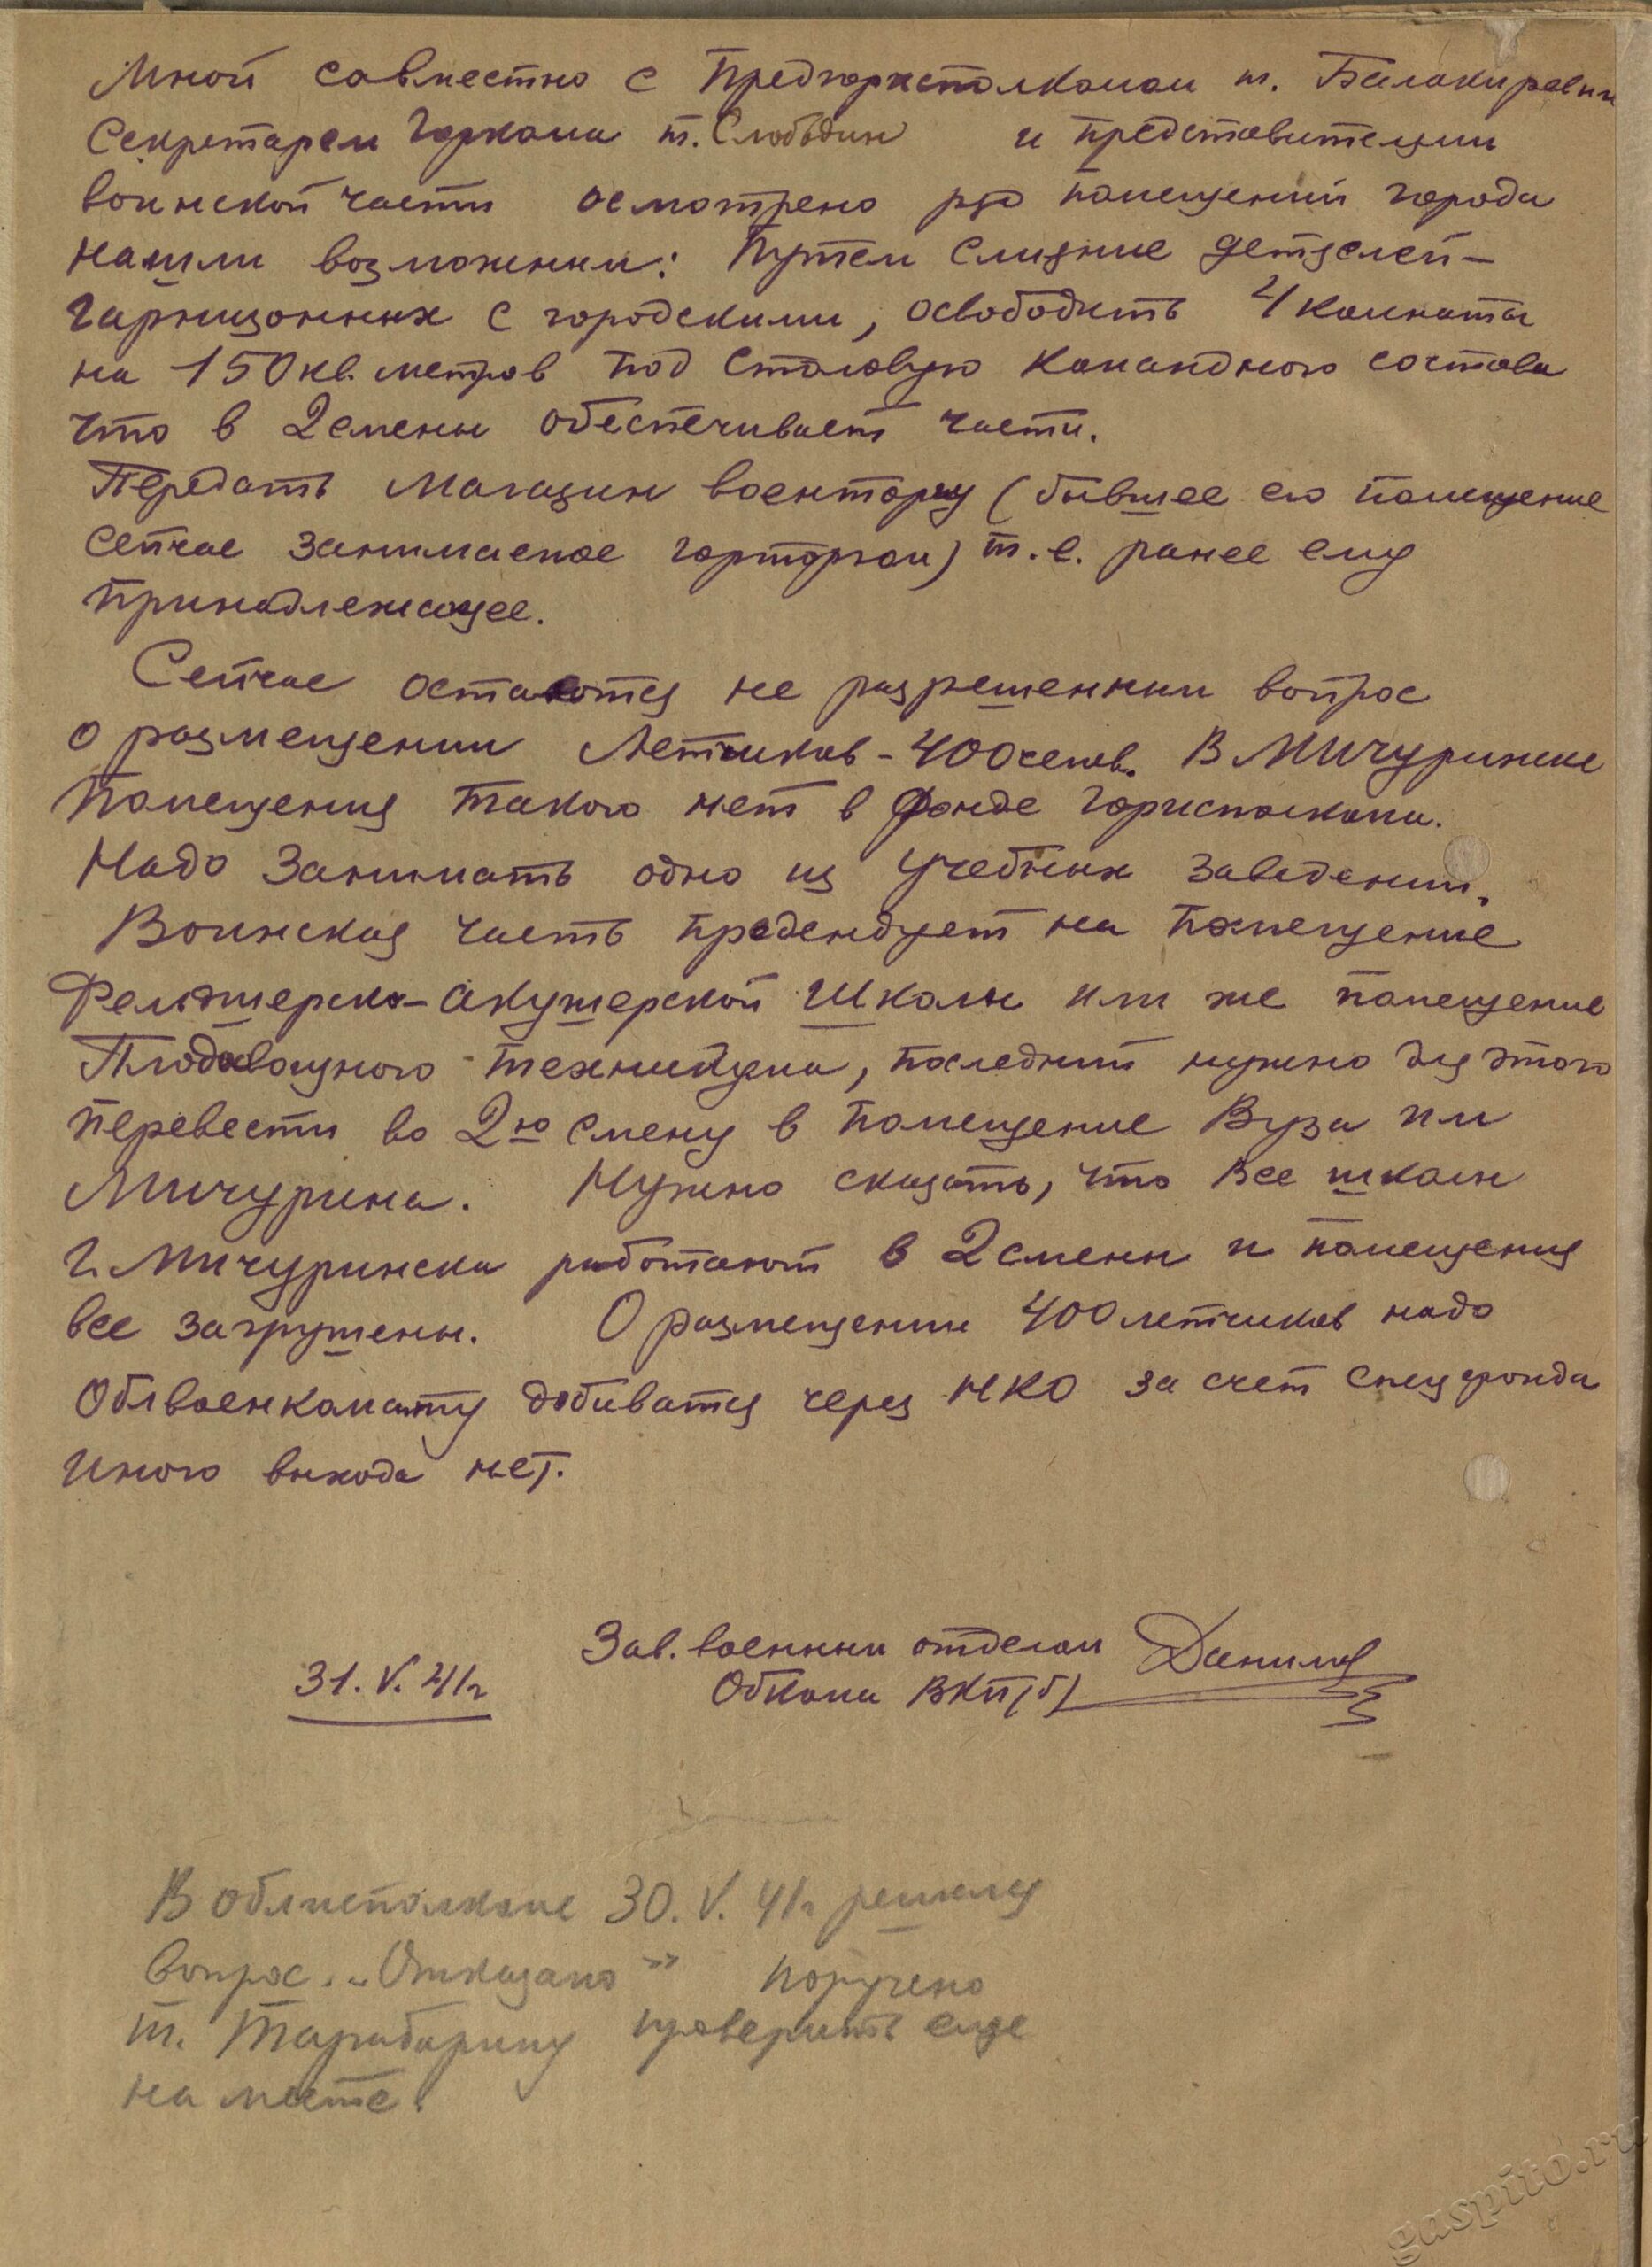 Мной совместно с Предгорисполкомом т. Балакиревым
Секретарем Горкома т. Слободин и представителями
воинской части осмотрено ряд помещений города
нашли возможным: Путем слияние детяслей-
гарнизонных с городскими, освободить 4 комнаты
на 150 кв. метров под столовую командного состава
что в 2 смены обеспечивает части.
Передать магазин военторгу (бывшее его помещение
сейчас занимаемое горторгом) т.е. ранее ему
принадлежащее.
Сейчас остаются не разрешенным вопрос
о размещении Летчиков - 400 челов. В Мичуринске
помещения такого нет в фонде Горисполкома.
Надо занимать одно из учебных заведений.
Воинская часть предендует на помещение
Фельдшерско-акушерской Школы или же помещение
Плодоовощного техникума, последний нужно для этого
перевести во 2ю смену в помещение Вуза им
Мичурина. Нужно сказать, что все школы
г. Мичуринска работают в 2 смены и помещения
все загружены. О размещении 400 летчиков надо
Облвоенкомату добиватся через НКО за счет спецфонда
иного выхода нет.
Зав. военным отделом Данилов
31. V. 41г Обкома ВКП(б)
В облисполкоме 30. V. 41г решался
вопрос. „Отказано” поручено
т. Тарабарину проверить еще
на месте.
gaspito.ru